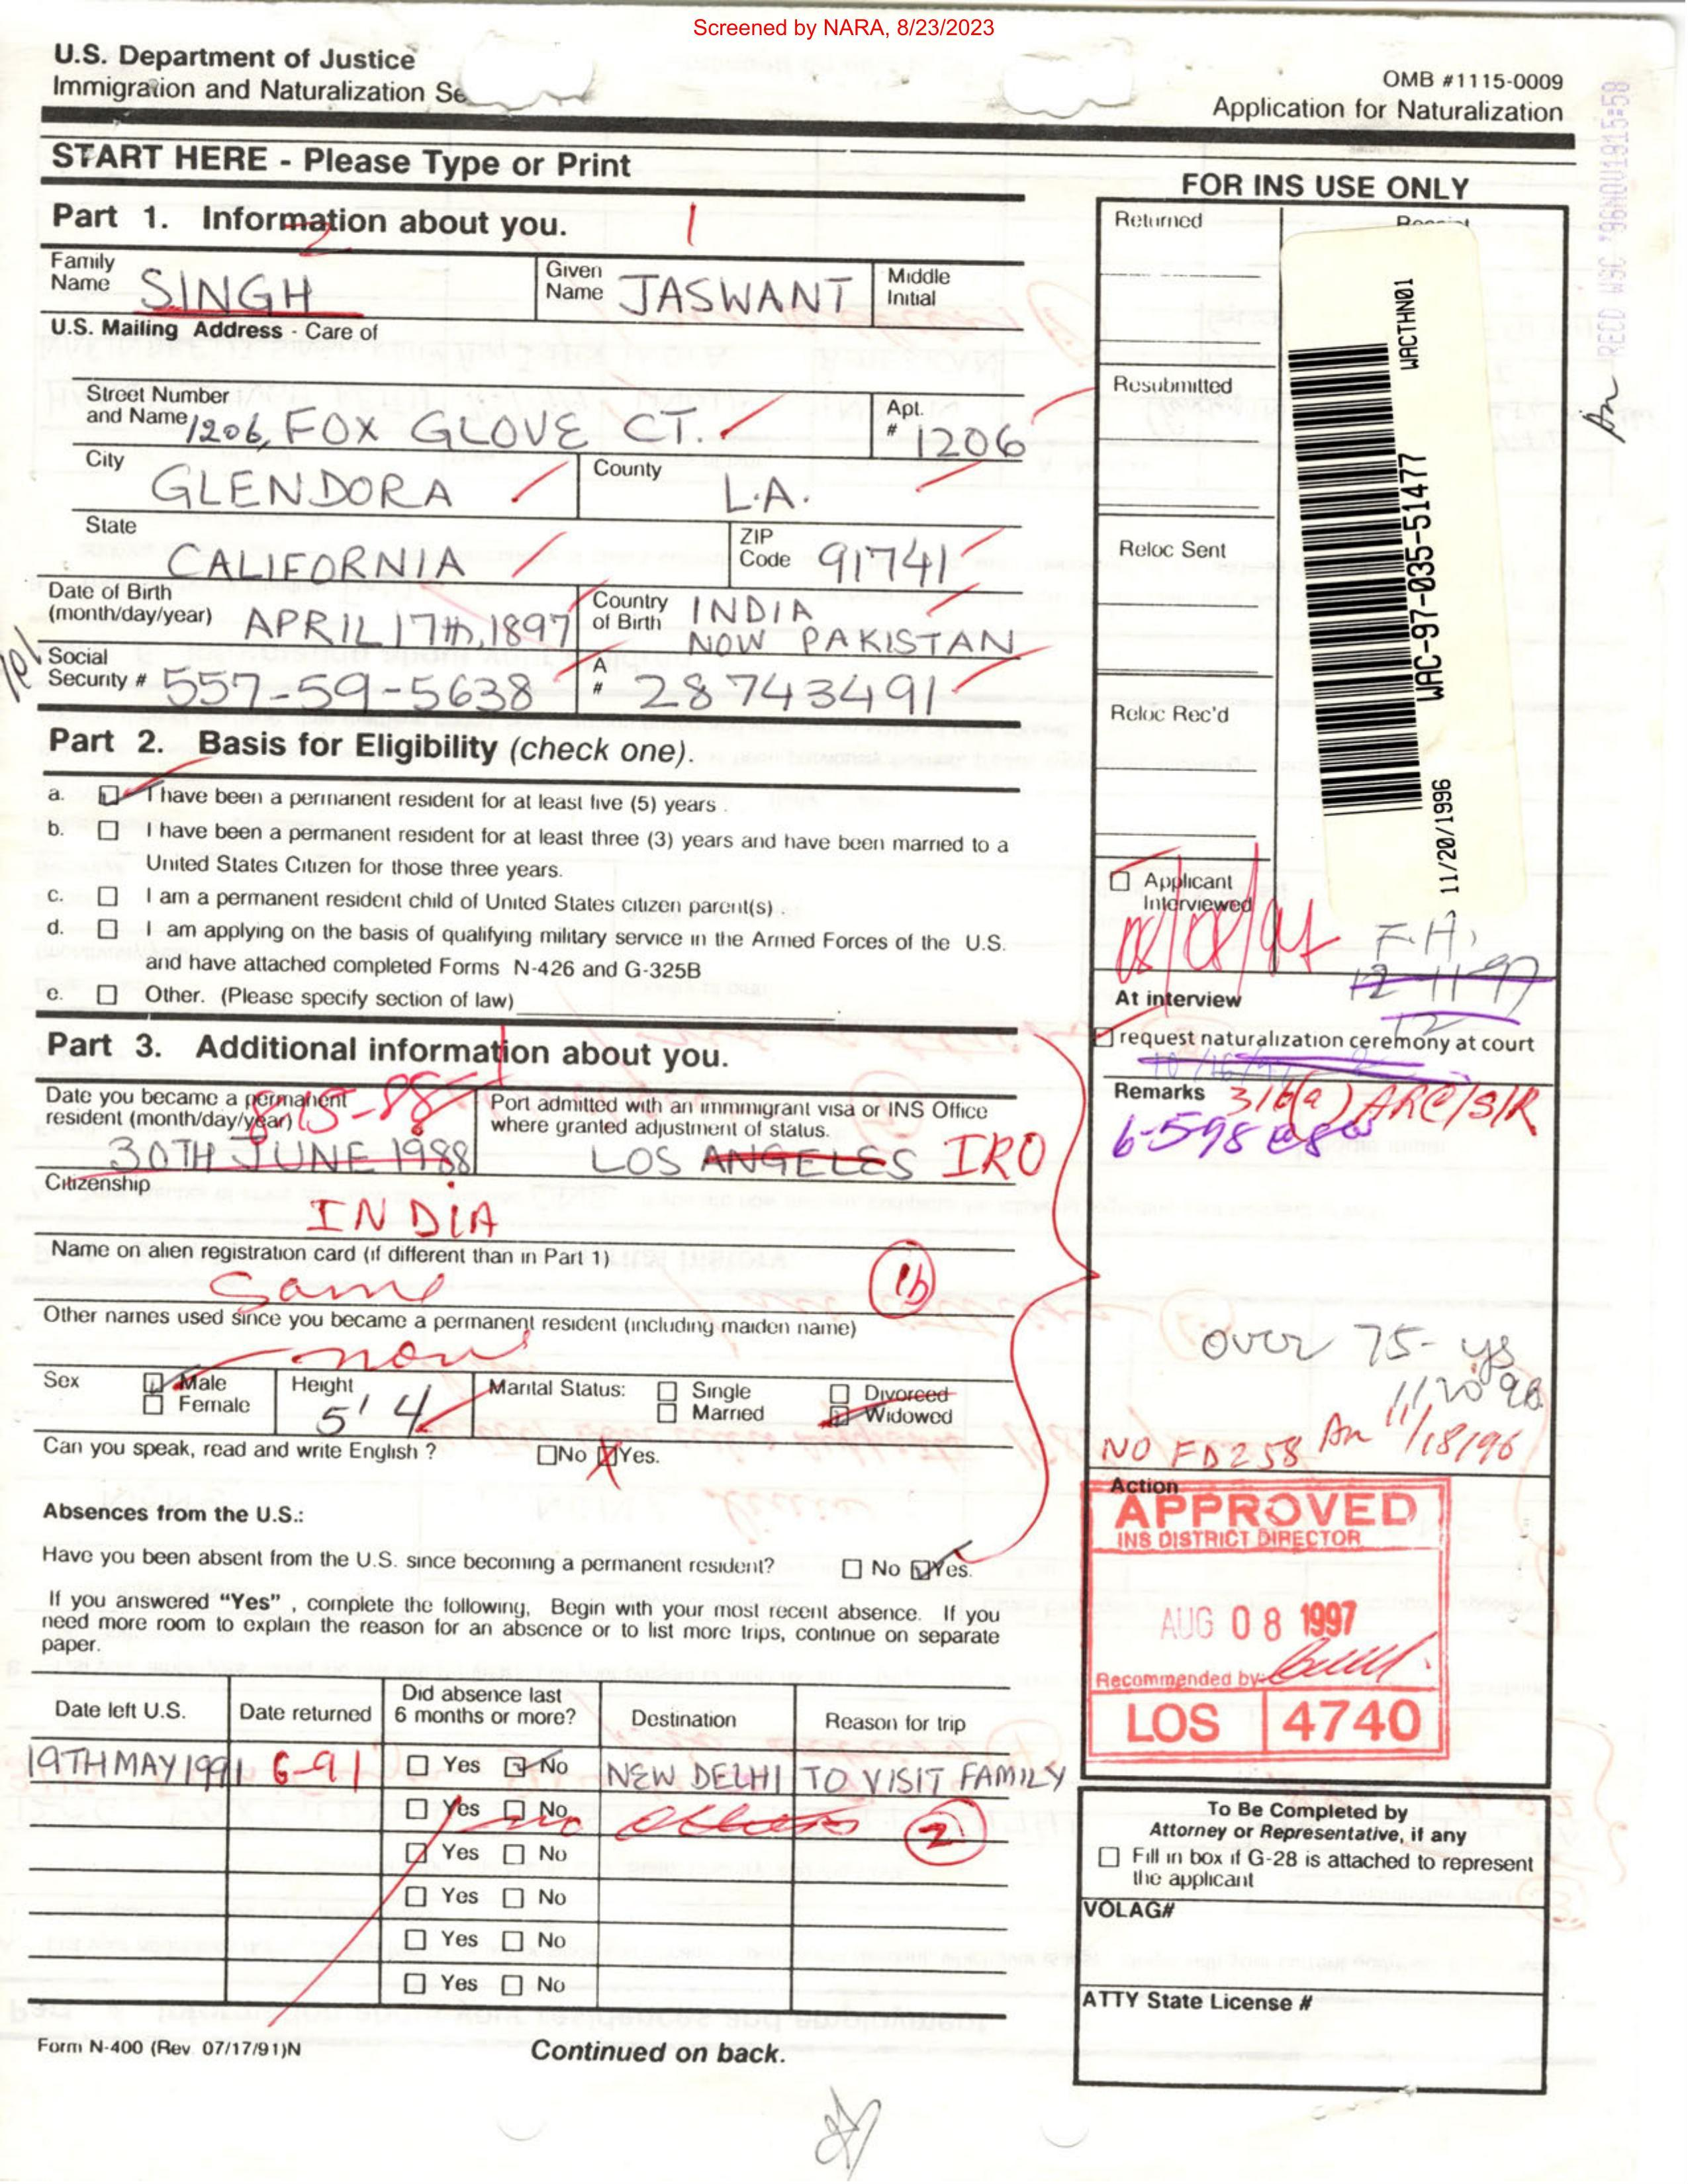 Screened by NARA, 8/23/2023
U.S. Department of Justice
Immigration and Naturalization Se
OMB #1115-0009
Application for Naturalization
RECD WSC '96NOV1915:58
START HERE - Please Type or Print
FOR INS USE ONLY
Part 1. Information about you.
1
2
Family Name SINGH
Given Name JASWANT
Middle Initial
U.S. Mailing Address - Care of
Street Number and Name 1206, FOX GLOVE CT.
Apt. # 1206
City GLENDORA
County L.A.
State CALIFORNIA
ZIP Code 91741
Date of Birth (month/day/year) APRIL 17th, 1897
Country of Birth INDIA NOW PAKISTAN
Social Security # 557-59-5638
A # 28743491
Part 2. Basis for Eligibility (check one).
a. I have been a permanent resident for at least five (5) years .
b. I have been a permanent resident for at least three (3) years and have been married to a
United States Citizen for those three years.
c. I am a permanent resident child of United States citizen parent(s) .
d. I am applying on the basis of qualifying military service in the Armed Forces of the U.S.
and have attached completed Forms N-426 and G-325B
e. Other. (Please specify section of law)
Part 3. Additional information about you.
Date you became a permanent resident (month/day/year) 8-15-88
30TH JUNE 1988
Port admitted with an immmigrant visa or INS Office
where granted adjustment of status.
LOS ANGELES IRO
Citizenship
INDIA
Name on alien registration card (if different than in Part 1)
Same
1b
Other names used since you became a permanent resident (including maiden name)
none
Sex Male Female
Height 5' 4
Marital Status: Single Married Divorced Widowed
Can you speak, read and write English ? No Yes.
Absences from the U.S.:
Have you been absent from the U.S. since becoming a permanent resident? No Yes.
If you answered "Yes" , complete the following, Begin with your most recent absence. If you
need more room to explain the reason for an absence or to list more trips, continue on separate
paper.
Date left U.S. Date returned Did absence last 6 months or more? Destination Reason for trip
19TH MAY 1991 6-91 Yes No NEW DELHI TO VISIT FAMILY
Yes No no others 2
Yes No
Yes No
Yes No
Yes No
Form N-400 (Rev 07/17/91)N
Continued on back.
Returned
Receipt
Resubmitted
Reloc Sent
Reloc Rec'd
WACTHN01
WAC-97-035-51477
11/20/1996
Applicant Interviewed
F.H.
12-11-97
At interview
request naturalization ceremony at court
Remarks
316(a) ARC/S/R
over 75-ys
11/20/96
NO FD258 An 11/18/96
Action
APPROVED
INS DISTRICT DIRECTOR
AUG 08 1997
Recommended by:
LOS 4740
To Be Completed by
Attorney or Representative, if any
Fill in box if G-28 is attached to represent
the applicant
VOLAG#
ATTY State License #